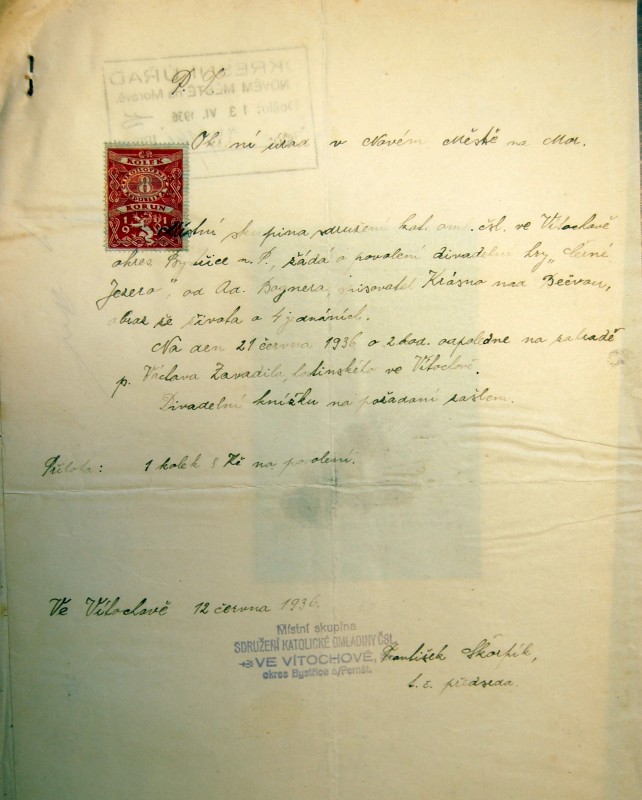 P. T.
OKRESNÍ ÚŘAD
NOVÉM MĚSTĚ na Moravě.
13 VI. 1936
Ok ní úřad v Novém Městě na Mor.
ČR
KOLEK
8
KORUN
19
Místní skupina sdružení kat. oml. čsl. ve Vítochově
okres Bystřice n. P., žádá o povolení divadelní hry „Černé
Jezero", od Ad. Bognera, spisovatel Krásno nad Bečvou,
obraz ze života o 4 jednáních.
Na den 21 června 1936 o 2 hod. odpoledne na zahradě
p. Václava Zavadila, hostinského ve Vítochově.
Divadelní knížku na požádaní zašlem.
Příloha: 1 kolek 8 Kč na povolení.
Ve Vítochově 12 června 1936.
Místní skupina
SDRUŽENÍ KATOLICKÉ OMLADINY ČSL.
VE VÍTOCHOVĚ,
okres Bystřice n/Pernšt.
František Skorkík,
t. č. předseda.